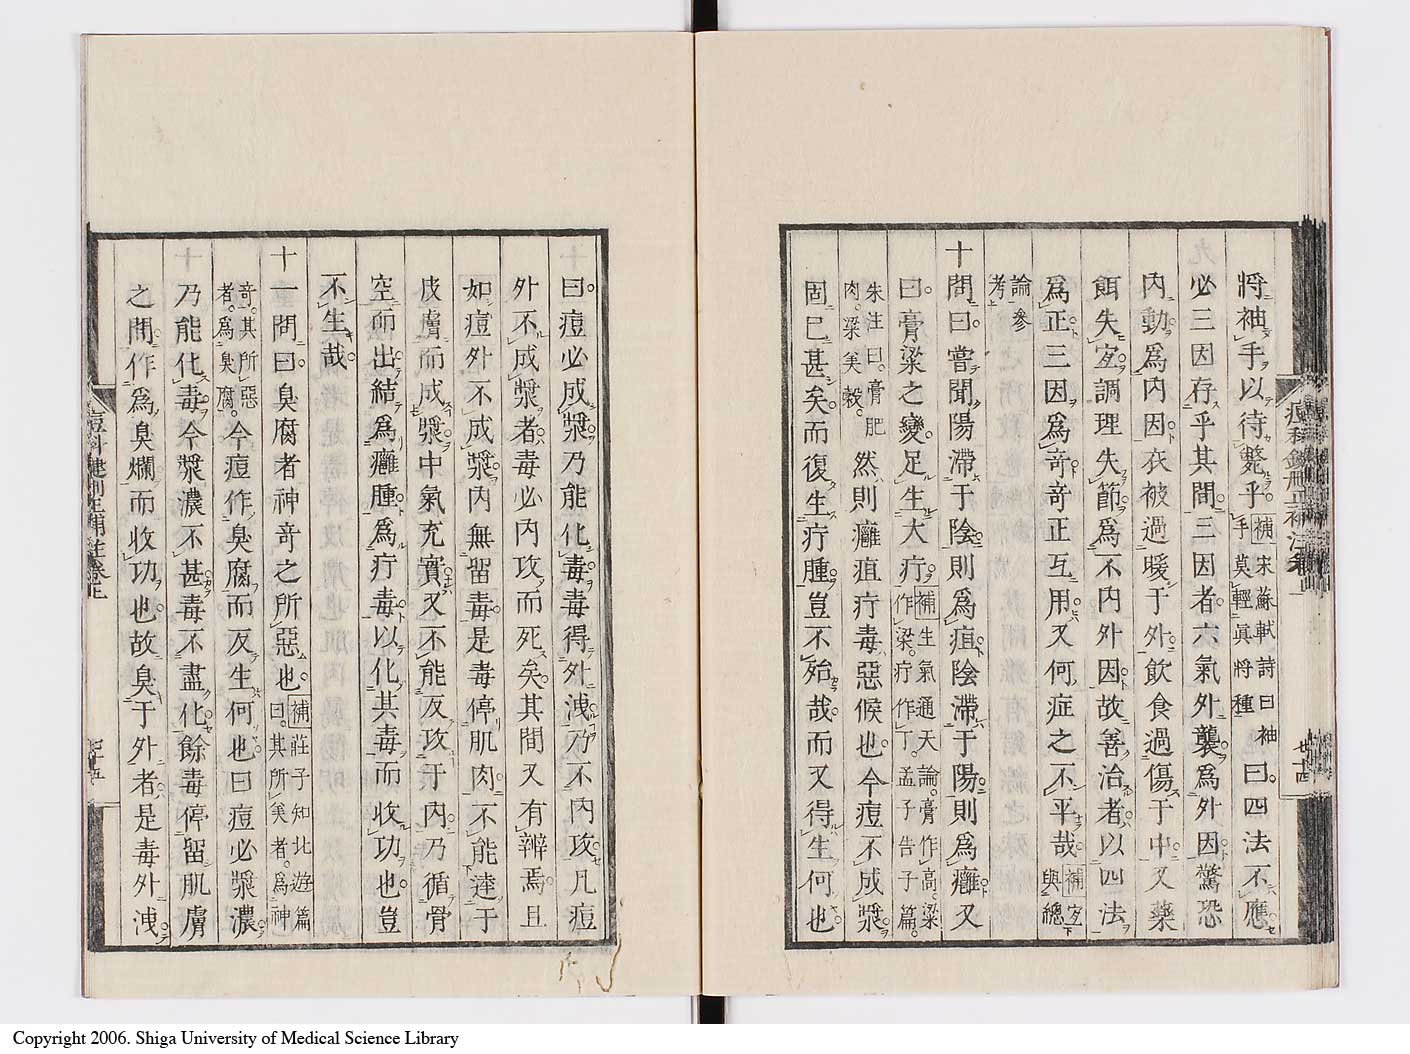 將袖手以待斃乎補宋蘇軾詩曰袖手莫輕眞將種曰四法不應
必三因存乎其間三因者六氣外襲爲外因驚恐
内動爲内因衣被過暖于外飲食過傷于中又藥
餌失宜調理失節爲不内外因故善治者以四法
爲正三因爲竒竒正互用又何症之不平哉補宜與總
論參考
十問曰嘗聞陽滯于陰則爲疽陰滯于陽則爲癰又
曰膏粱之變足生大疔補生氣通天論膏作高粱作梁疔作丁孟子告子篇
朱注曰膏肥肉粱美穀然則癰疽疔毒惡候也今痘不成漿
固已甚矣而復生疔腫豈不殆哉而又得生何也
曰痘必成漿乃能化毒毒得外洩乃不内攻凡痘
外不成漿者毒必内攻而死矣其間又有辨焉且
如痘外不成漿内無留毒是毒停肌肉不能達于
皮膚而成漿中氣充實又不能反攻于内乃循骨
空而出結爲癰腫爲疔毒以化其毒而收功也豈
不生哉
十一問曰臭腐者神竒之所惡也補莊子知北遊篇曰其所美者爲神
竒其所惡者爲臭腐今痘作臭腐而反生何也曰痘必漿濃
乃能化毒今漿濃不甚毒不盡化餘毒停留肌膚
之間作爲臭爛而收功也故臭于外者是毒外洩
痘科鍵刪正補註卷上
廿十四
Copyright 2006. Shiga University of Medical Science Library